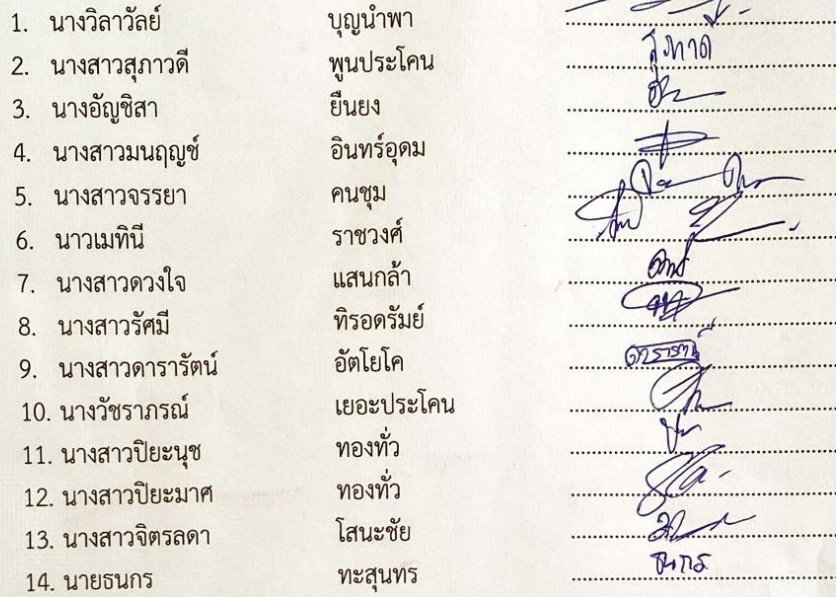 1. นางวิลาวัลย์ บุญนำพา
2. นางสาวสุภาวดี พูนประโคน สุภาวดี
3. นางอัญชิสา ยืนยง
4. นางสาวมนฤญช์ อินทร์อุดม
5. นางสาวจรรยา คนชุม
6. นาวเมทินี ราชวงศ์
7. นางสาวดวงใจ แสนกล้า
8. นางสาวรัศมี ทิรอดรัมย์
9. นางสาวดารารัตน์ อัตโยโค ดารารัตน์
10. นางวัชราภรณ์ เยอะประโคน
11. นางสาวปิยะนุช ทองทั่ว
12. นางสาวปิยะมาศ ทองทั่ว
13. นางสาวจิตรลดา โสนะชัย
14. นายธนกร ทะสุนทร ธนกร